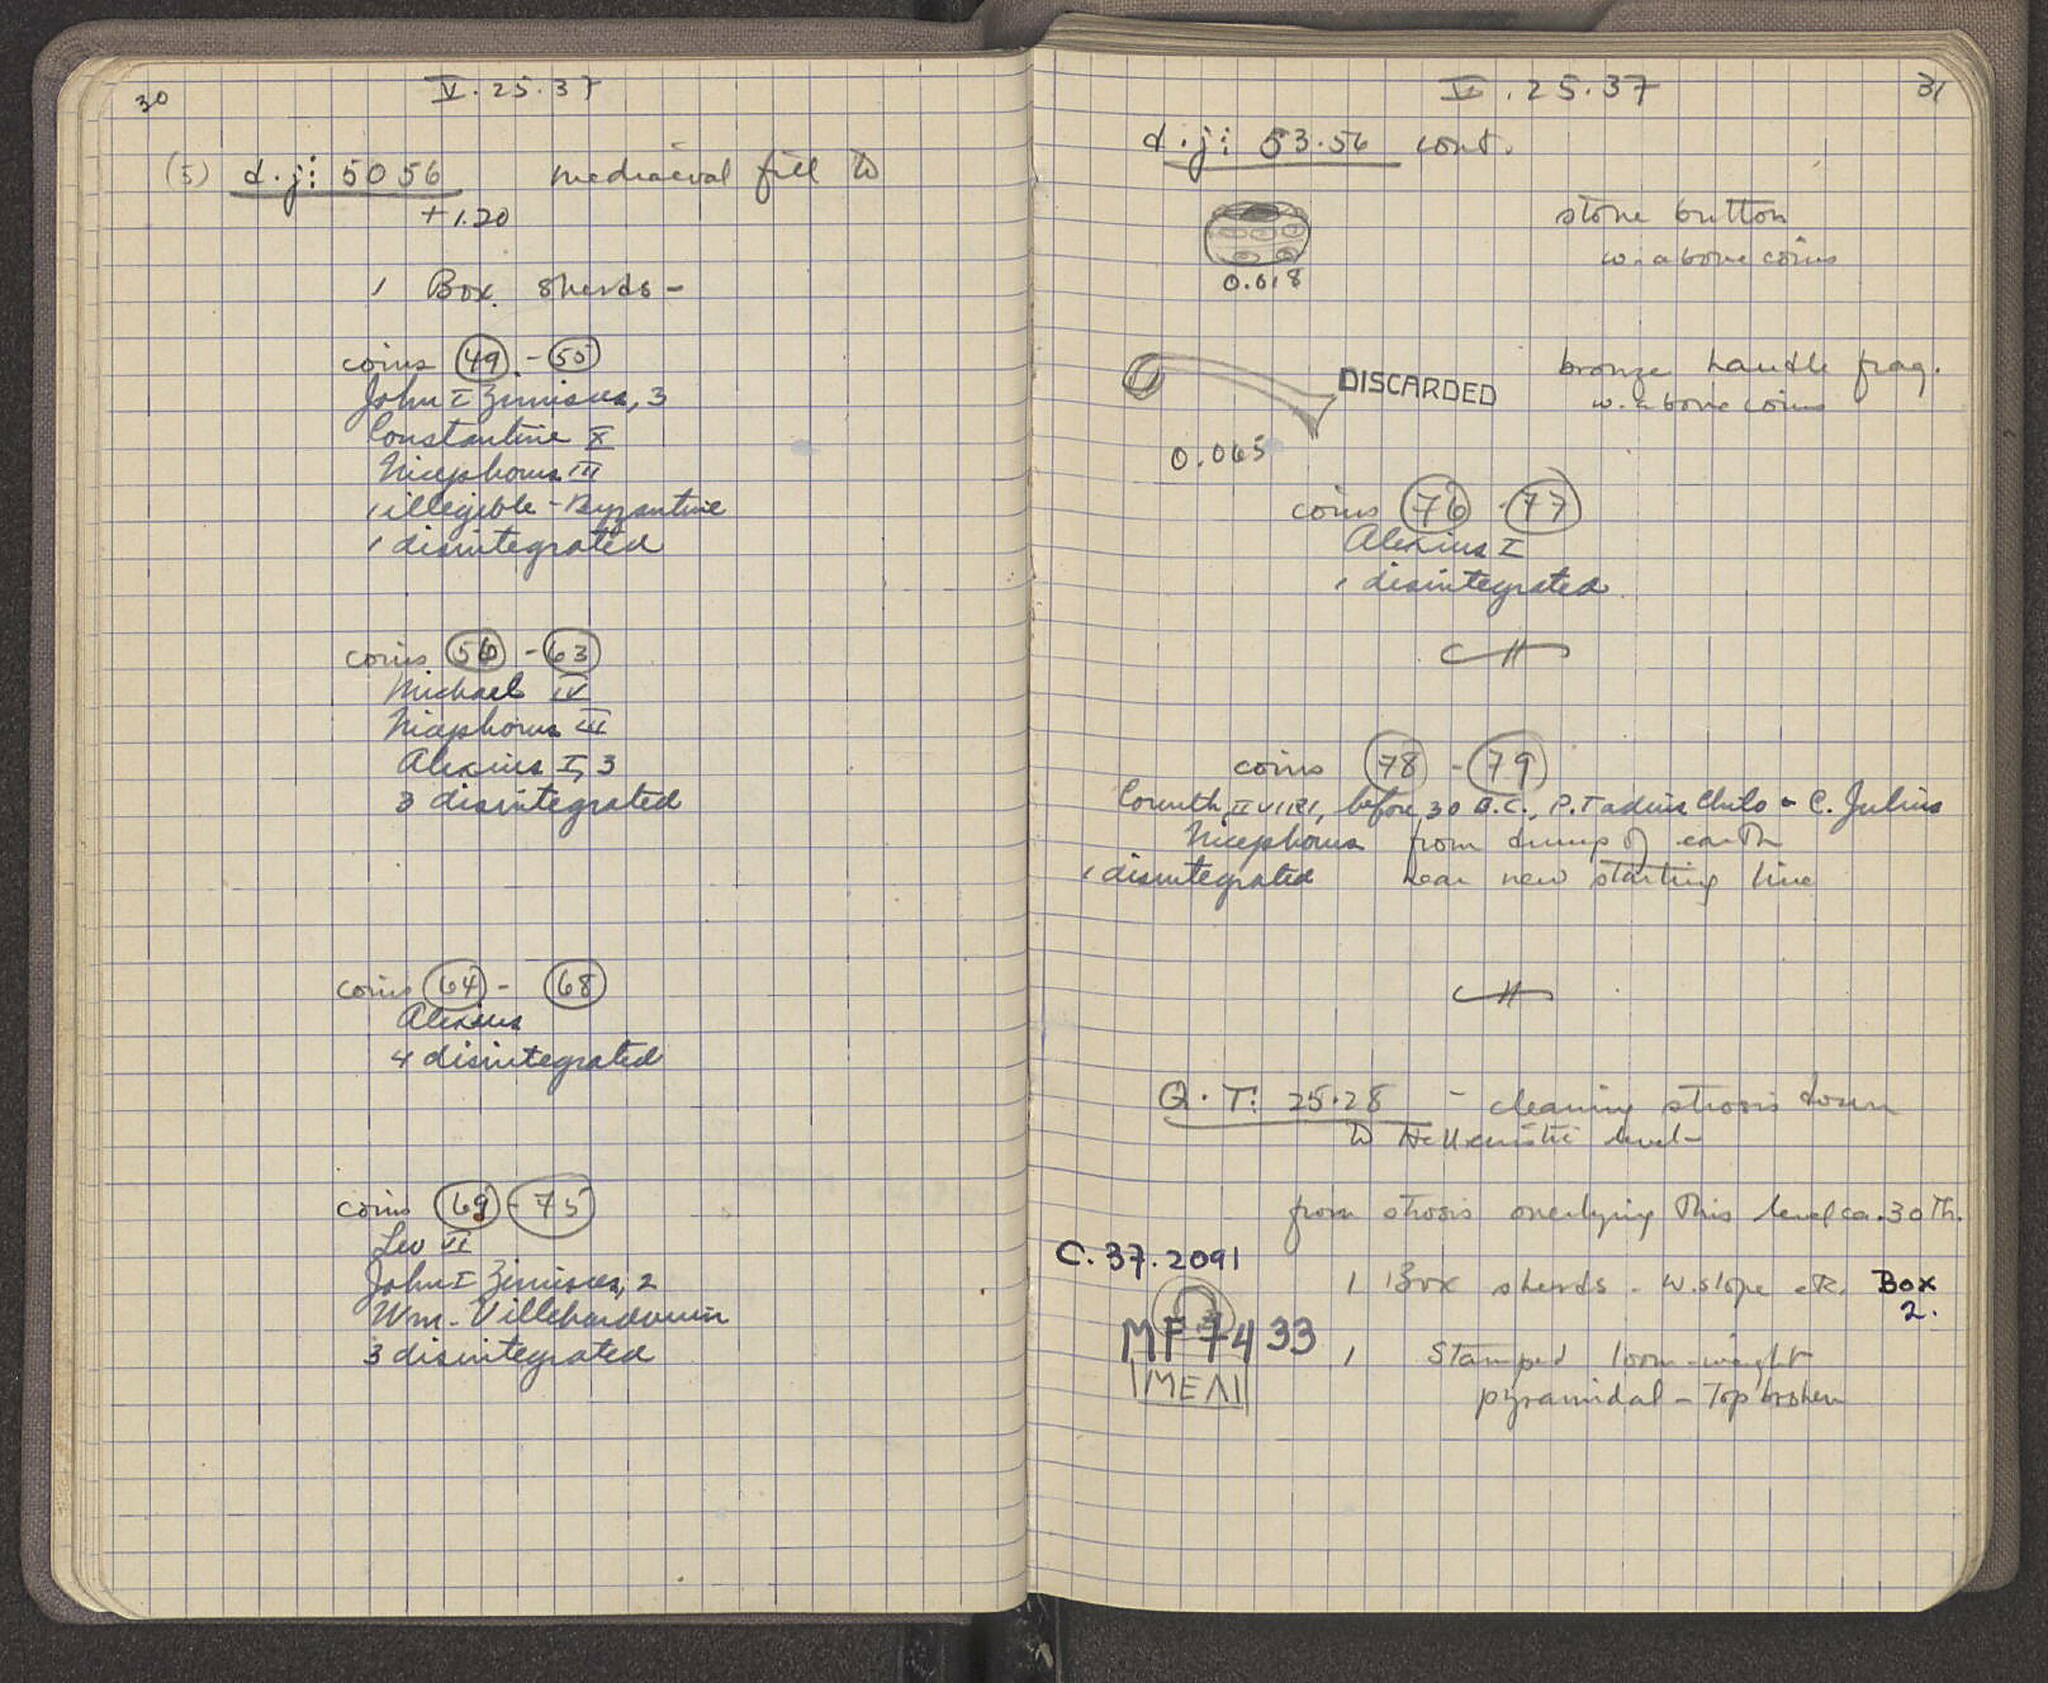 30
V. 25. 37
(5) d.j: 50 56 mediaeval fill to
+ 1.20
1 Box sherds -
coins 49 - 55
John I Zimisces, 3
Constantine X
Nicephorus III
1 illegible - Byzantine
1 disintegrated
coins 56 - 63
Michael IV
Nicephorus III
Alexius I, 3
3 disintegrated
coins 64 - 68
Alexius
4 disintegrated
coins 69 - 75
Leo VI
John I Zimisces, 2
Wm. Villehardouin
3 disintegrated
V. 25. 37
31
d.j: 53.56 cont.
stone button
w. above coins
0.018
bronze handle frag.
DISCARDED
w. above coins
0.065
coins 76 - 77
Alexius I
1 disintegrated
coins 78 - 79
Corinth, II VIRI, before 30 B.C., P. Tadius Chilo - C. Julius
Nicephorus from dump of earth
1 disintegrated near new starting line
Q. T: 25.28 - cleaning strosis down
to Hellenistic level -
from strosis overlying this level ca. 30 Th.
C. 37. 2091
1 Box sherds - W. slope etc. Box
2.
MF 7433
1 Stamped loom-weight
MEΛI
pyramidal - Top broken